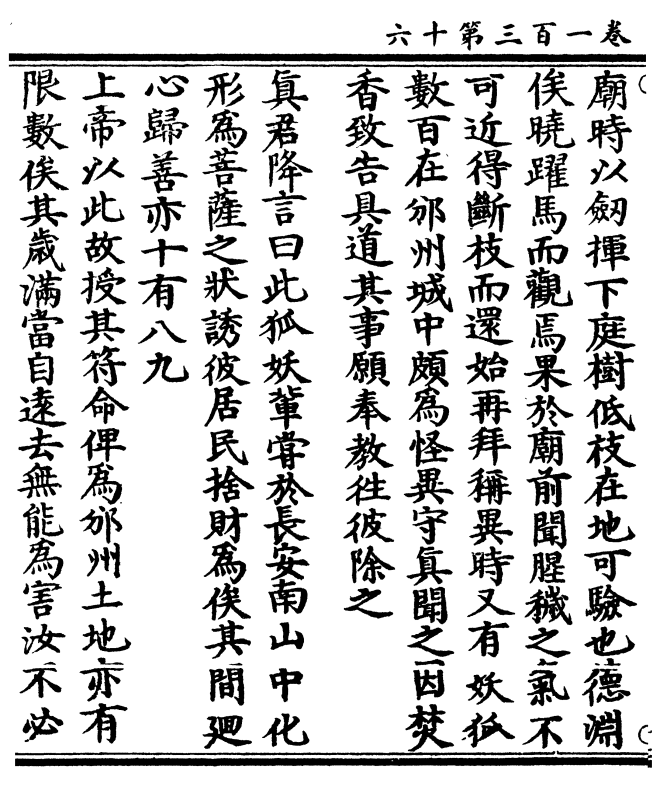 卷一百三第十六
廟時以劒揮下庭樹低枝在地可驗也德淵
俟曉躍馬而觀焉果於廟前聞腥穢之氣不
可近得斷枝而還始再拜稱異時又有妖狐
數百在邠州城中頗為怪異守真聞之因焚
香致告具道其事願奉教往彼除之
真君降言曰此狐妖輩嘗於長安南山中化
形為菩薩之狀誘彼居民捨財為俟其間迴
心歸善亦十有八九
上帝以此故授其符命俾為邠州土地亦有
限數俟其歲滿當自遠去無能為害汝不必